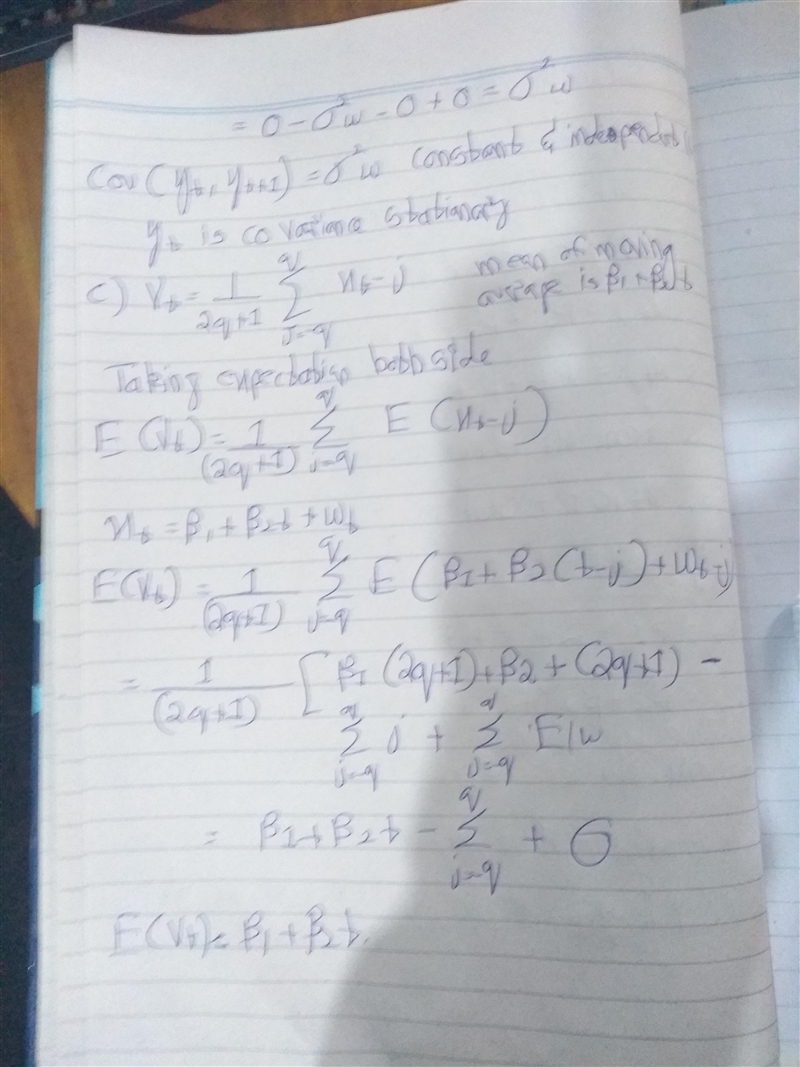 = 0 - σ²w - 0 + 0 = σ²w
Cov (yt, yt+1) = σ²w constant & independent
yt is covariance stationary
c) Vt = 1/(2q+1) q∑j=q xt-j mean of moving
average is β1 + β2 t
Taking expectation both side
E (Vt) = 1/(2q+1) q∑j=q E (xt-j)
xt = β1 + β2t + wt
E(Vt) = 1/(2q+1) q∑j=q E (β1 + β2 (t-j) + wt-j)
= 1/(2q+1) [ β1 (2q+1) + β2 + (2q+1) -
q∑j=q j + q∑j=q E|w
= β1 + β2 t - q∑j=q + 0
E(Vt) = β1 + β2t.